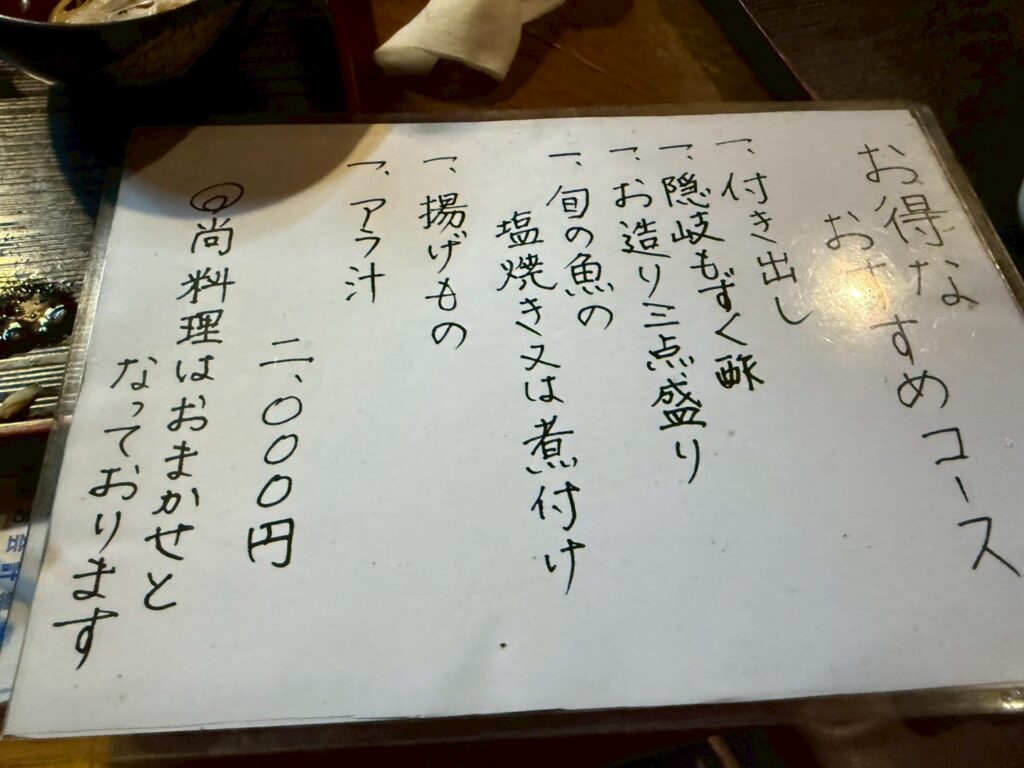 お得な
おすすめコース
一、付き出し
一、隠岐もずく酢
一、お造り三点盛り
一、旬の魚の
塩焼き又は煮付け
一、揚げもの
一、アラ汁
二、〇〇〇円
◎尚料理はおまかせと
なっております
会計